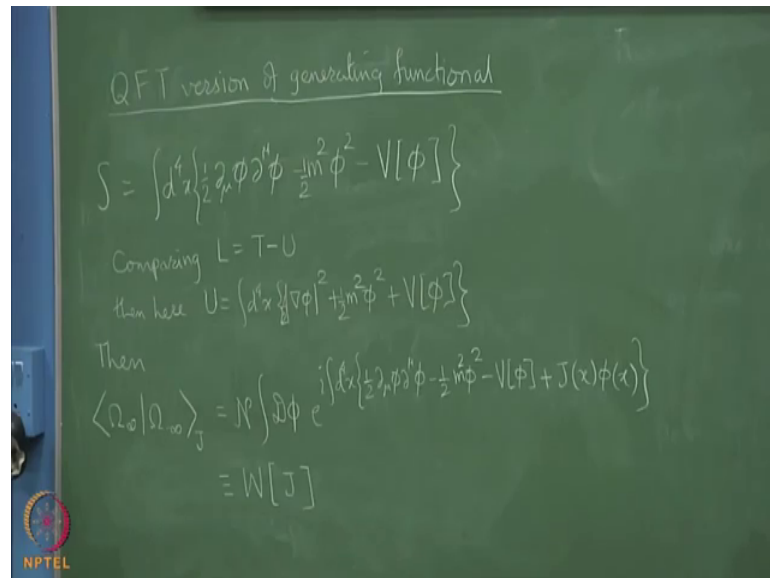 QFT version of generating functional
S = ∫d⁴x{½ ∂_μφ ∂^μφ - ½m²φ² - V[φ]}
Comparing L = T - U
then here U = ∫d⁴x{½|∇φ|² + ½m²φ² + V[φ]}
Then
⟨Ω_∞|Ω_-∞⟩_J = N∫Dφ e^{i∫d⁴x{½∂_μφ∂^μφ - ½m²φ² - V[φ] + J(x)φ(x)}}
≡ W[J]
NPTEL